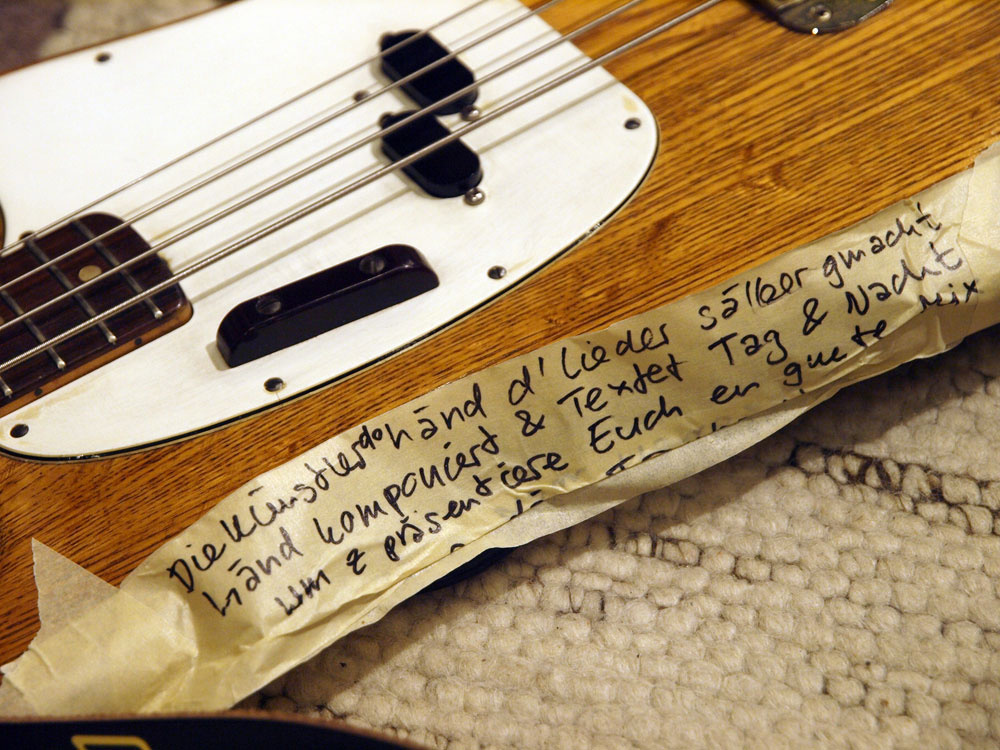 Die Künstler do händ d'Lieder sälber gmacht
händ komponiert & Textet Tag & Nacht
um z präsentiere Euch en guete Mix